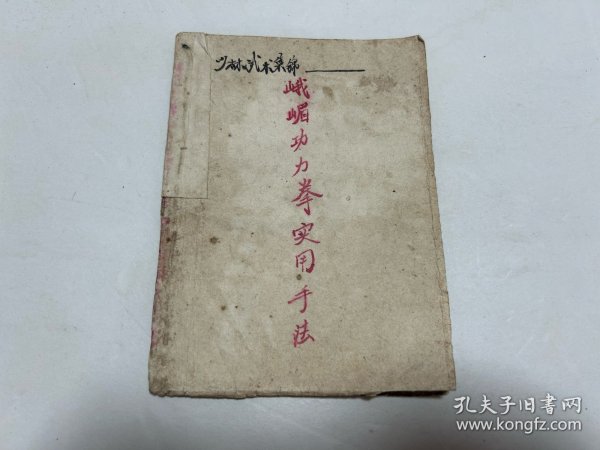 少林武术集锦
峨嵋功力拳实用手法
孔夫子旧书网
www.kongfz.com